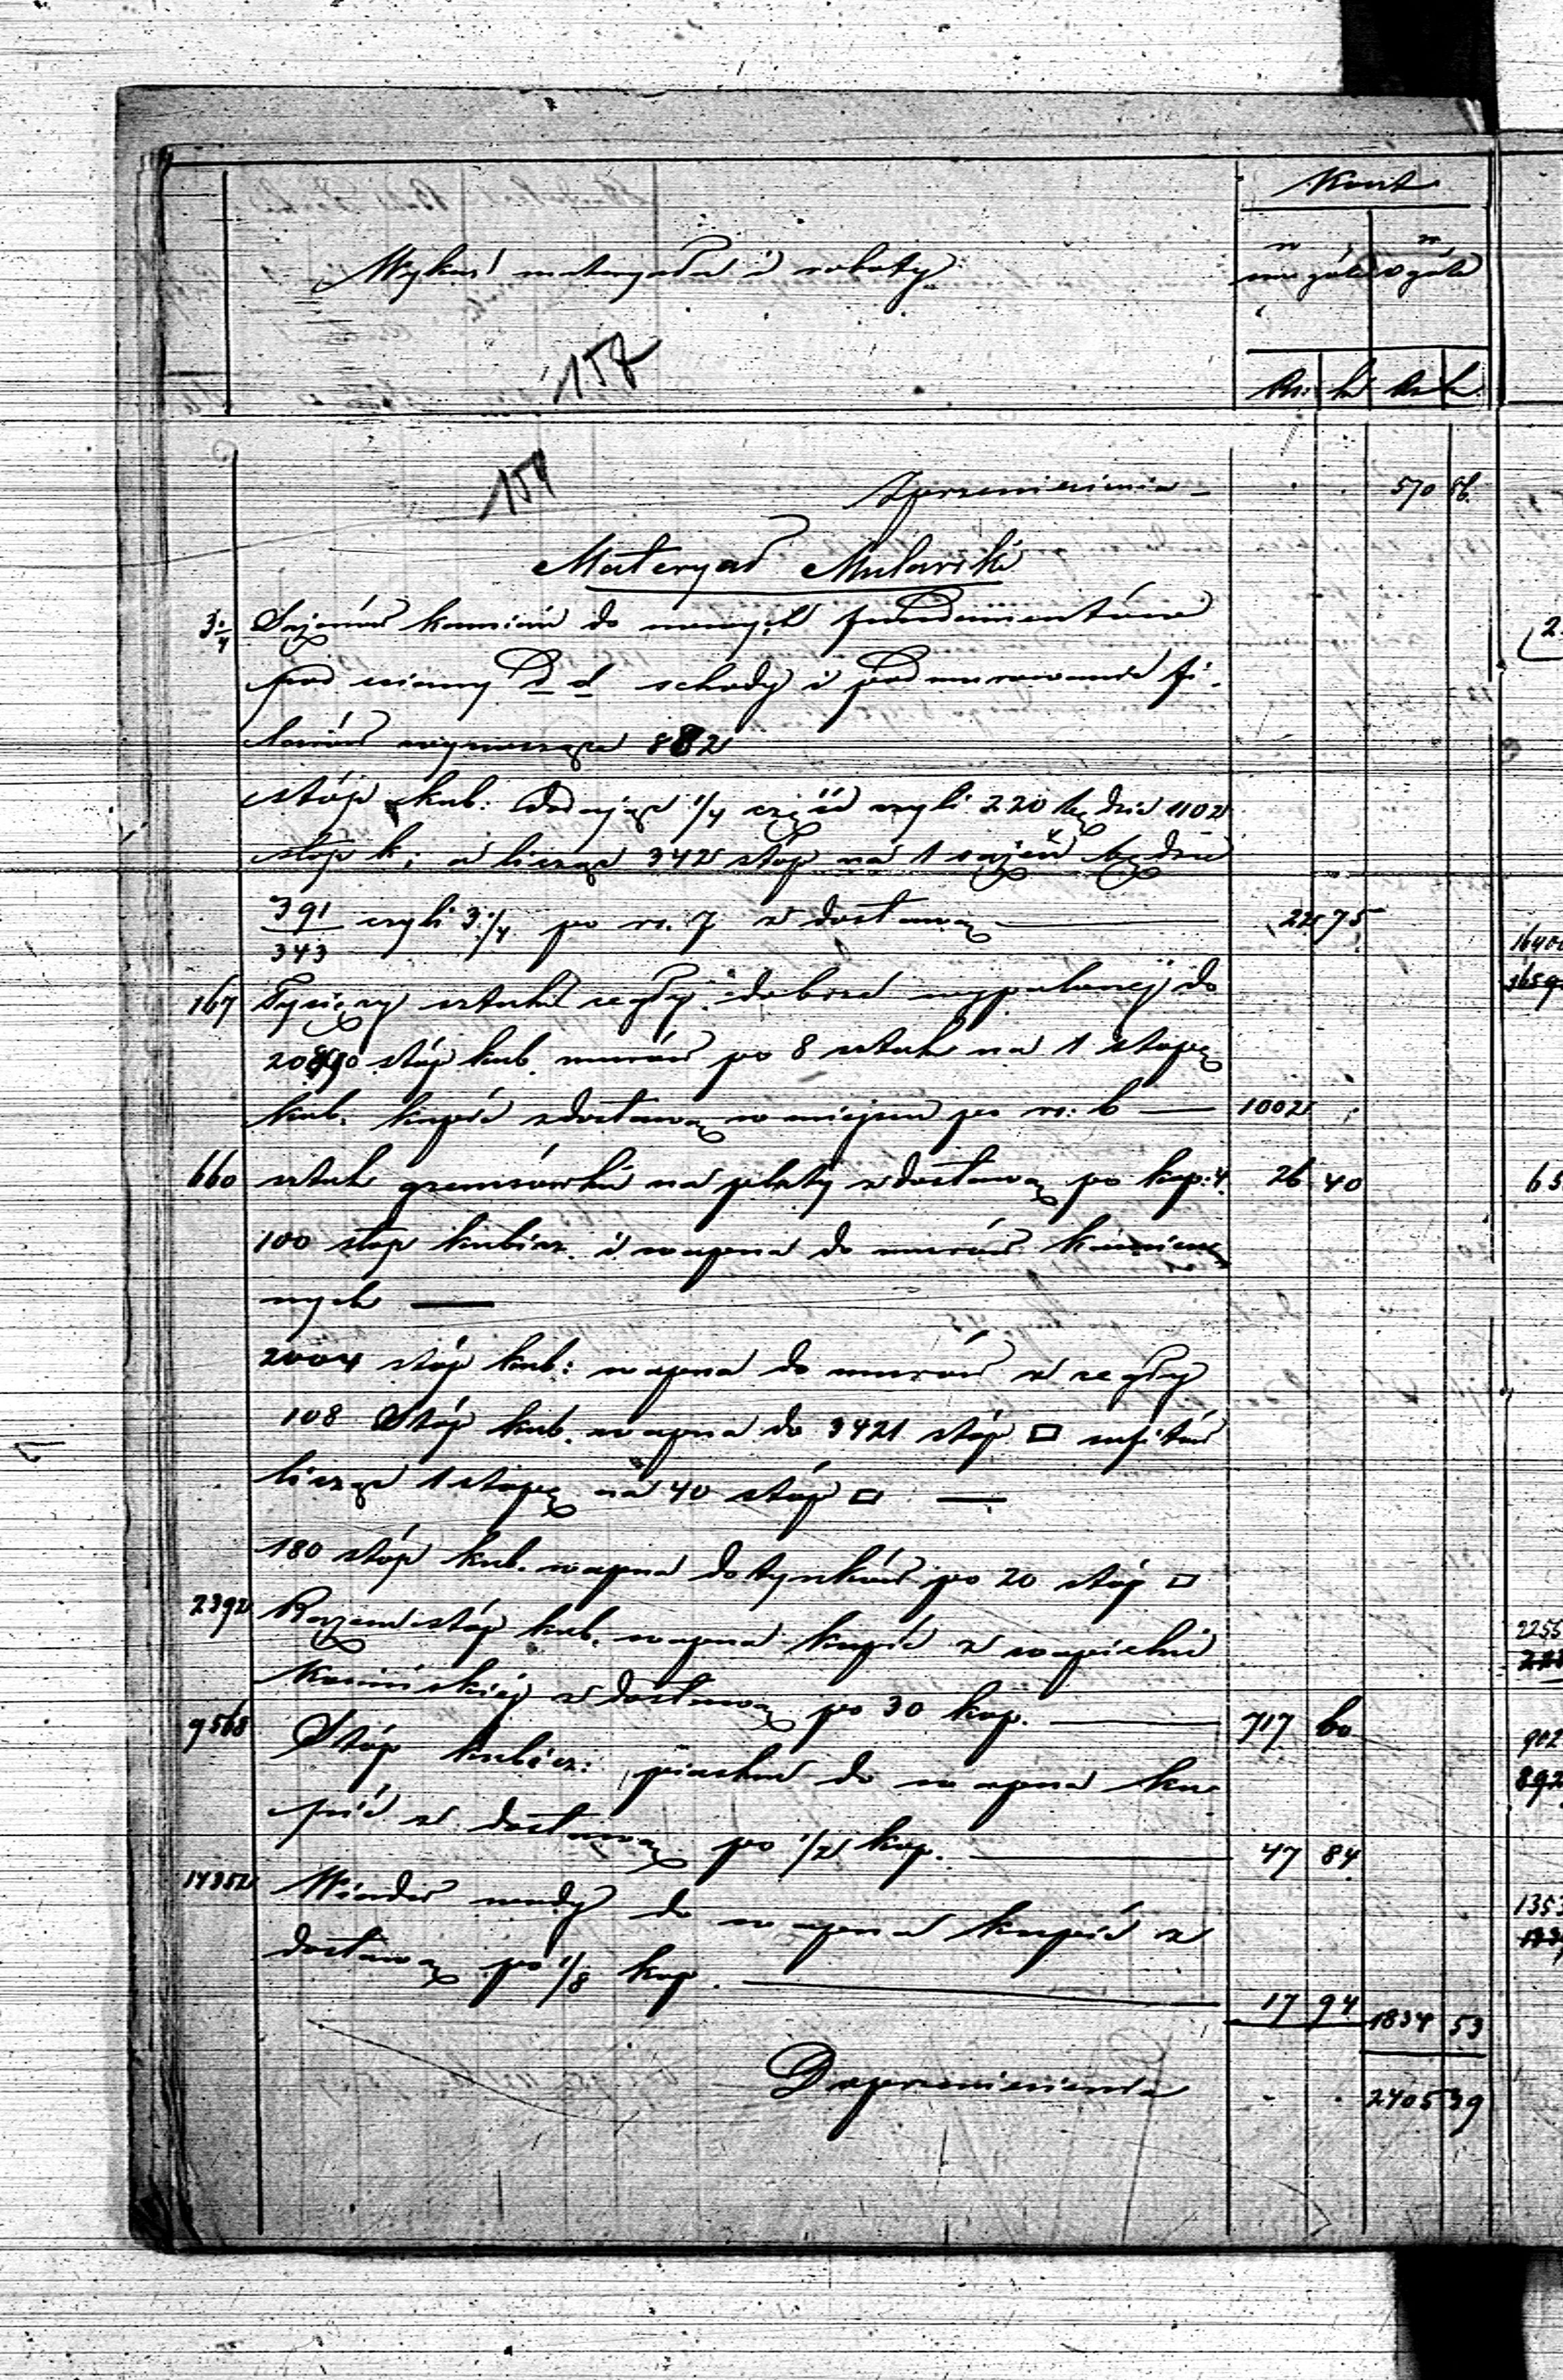 Koszt
Wykaz materyału i roboty
w szczególe w ogóle
157
Rs. k. Rs. k.
154
Z przeniesienia — 570 86
Materyał Mularski
3 1/4 Sążnów kamieni do nowych fundamentów
pod ściany D d schody i podmurowania fi-
larów wynosząca 882
stóp kub: dodając 1/4 część czyli 220 będzie 1102
stóp k; a licząc 342 stóp na 1 sążeń będzie
391/343 czyli 3 1/4 po rs. 7 z dostawą — 22 75
167 Tysięcy sztuk cegły dobrze wypalonej do
20890 stóp kub. murów po 8 sztuk na 1 stopę
kub. kupić z dostawą w miejscu po rs: 6 — 1002
660 sztuk gzemsówki na płaty z dostawą po kop: 4. 26 40
100 stóp kubicz. i wapna do murów kamien-
nych —
2004 stóp kub: wapna do murów z cegły
108 Stóp kub. wapna do 3421 stóp □ sufitów
licząc 1 stopę na 40 stóp □ —
180 stóp kub. wapna do tynków po 20 stóp □
2392 Razem stóp kub. wapna kupić z
z dostawą po 30 kop. — 717 60
9568 Stóp kubicz: piasku do wapna ku-
pić z dostawą po 1/2 kop. — 47 84
14352 Wiader wody do wapna kupić z
dostawą po 1/8 kop. — 17 94 1834 53
Do przeniesienia - . 2405 39